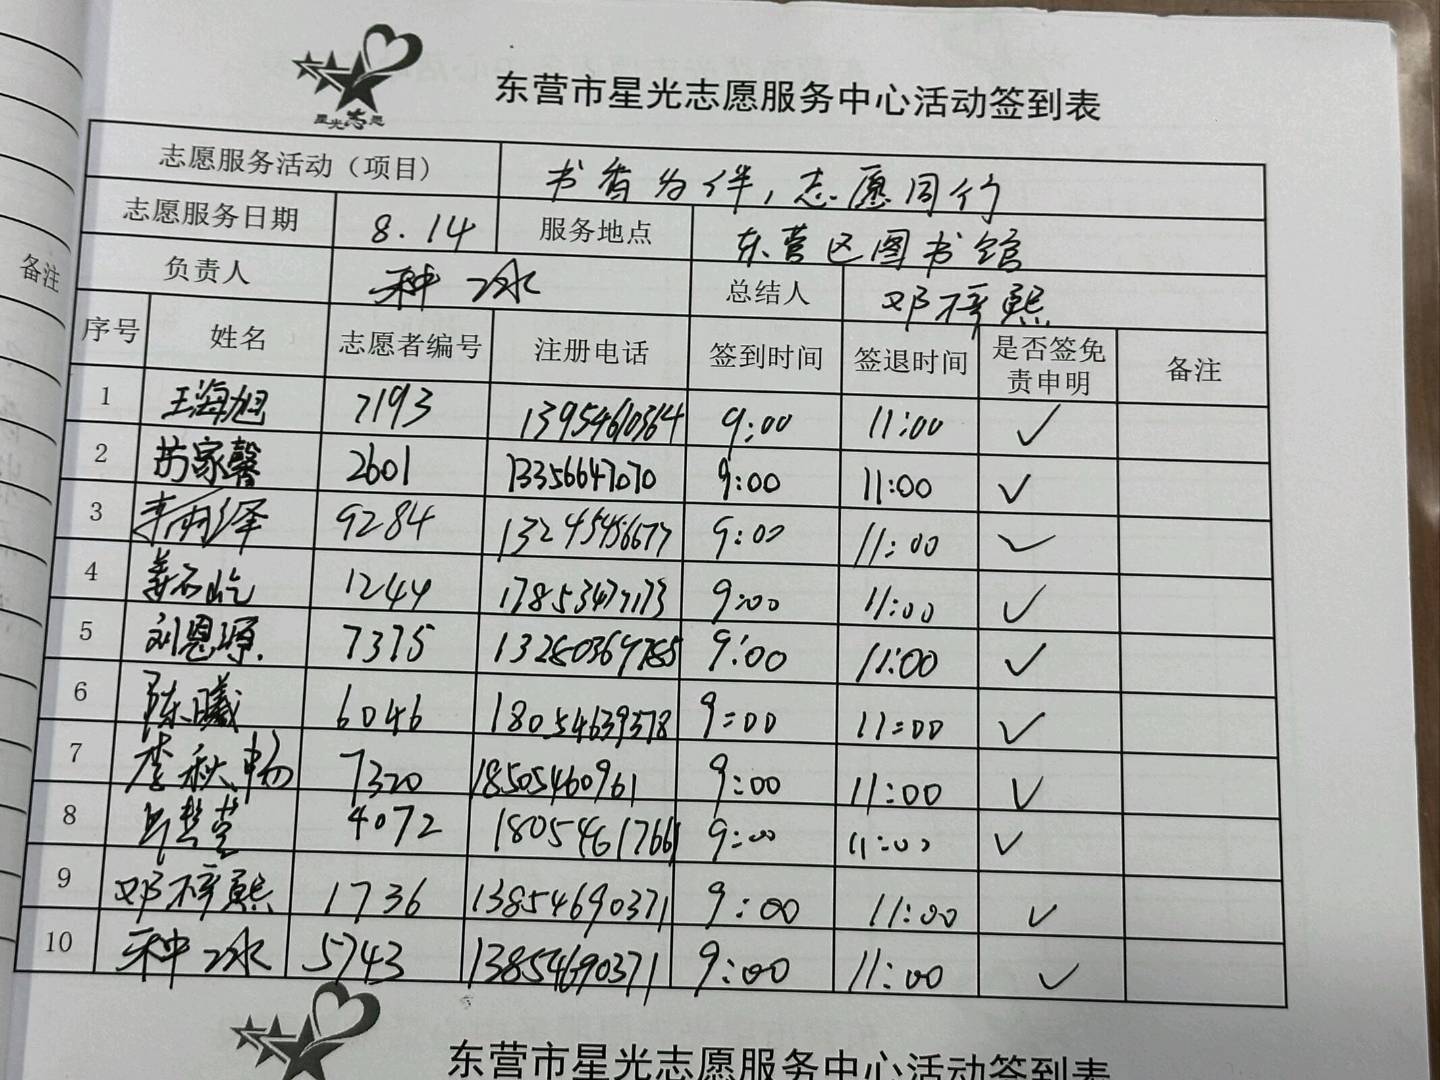 星光志愿
东营市星光志愿服务中心活动签到表
志愿服务活动（项目） 书香为伴，志愿同行
志愿服务日期 8.14 服务地点 东营区图书馆
负责人 种冰 总结人 邓梓熙
备注
序号 姓名 志愿者编号 注册电话 签到时间 签退时间 是否签免责申明 备注
1 王海旭 7193 13954610364 9:00 11:00 ✓
2 苏家馨 2601 13356647070 9:00 11:00 ✓
3 李雨泽 9284 13245456677 9:00 11:00 ✓
4 姜不屹 1244 17853477173 9:00 11:00 ✓
5 刘恩源 7375 13280369785 9:00 11:00 ✓
6 陈曦 6046 18054639378 9:00 11:00 ✓
7 李秋畅 7320 18505460961 9:00 11:00 ✓
8 4072 18054617661 9:00 11:00 ✓
9 邓梓熙 1736 13854690371 9:00 11:00 ✓
10 种冰 5743 13854690371 9:00 11:00 ✓
东营市星光志愿服务中心活动签到表